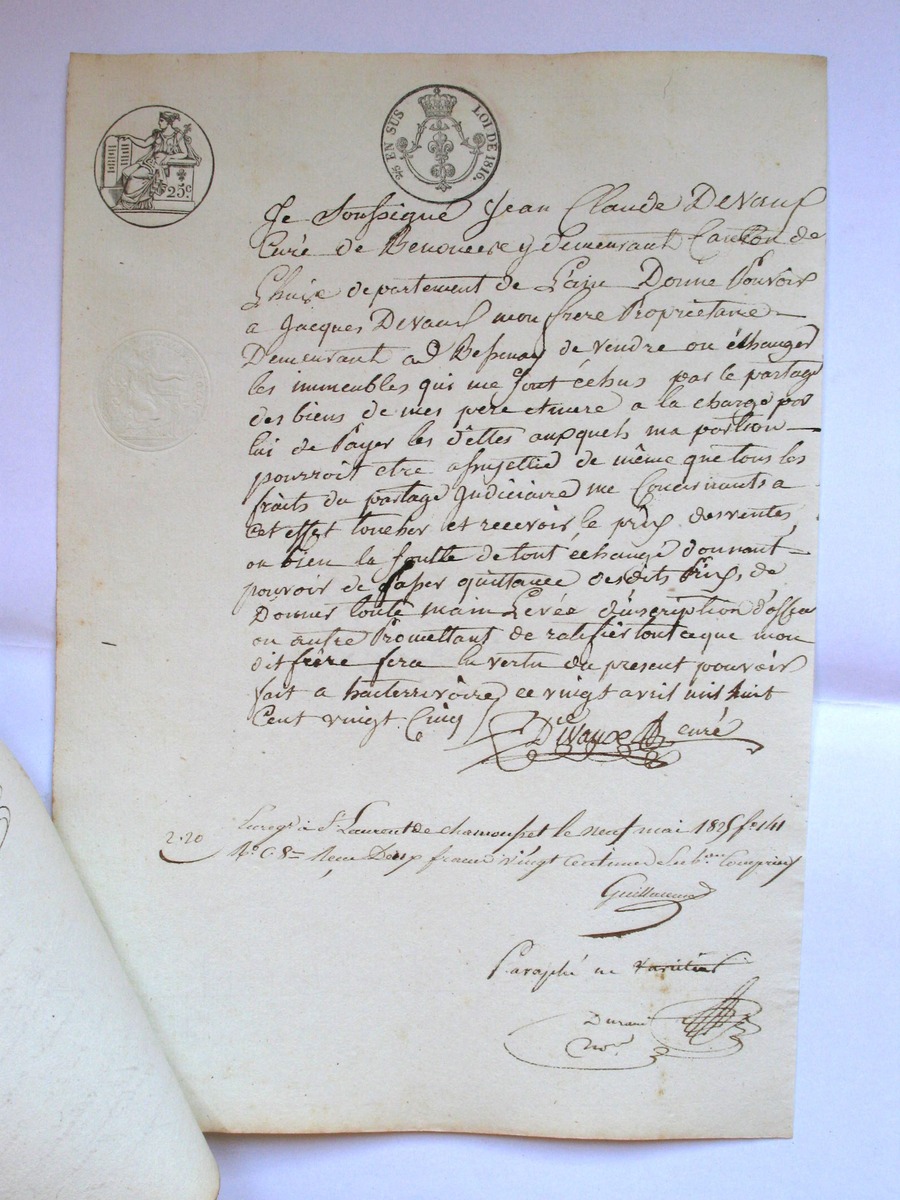 25c.
EN SUS LOI DE 1816.
Je Soussigné Jean Claude Devaux
Curé de Benonces y demeurant Canton de
Lhuis departement de L'ain Donne Pouvoir
a Jacques Devaux mon frere Proprietaire
Demeurant a Bessenay de vendre ou échanger
les immeubles qui me sont echus par le partage
des biens de mes pere et mere a la charge par
lui de Payer les dettes auxquels ma portion
pourroit etre assujettie de même que tous les
fraits du partage Judiciaire me Concernants a
cet effet toucher et recevoir le prix des ventes
ou bien la soulte de tout échange donnant
pouvoir de passer quittance desdits Prix, de
Donner toute main Levée d'inscription d'office
ou autre Promettant de ratifier tout ce que mon
dit frère fera en vertu du present pouvoir
fait a hauterrivoire ce vingt avril mil huit
Cent vingt Cinq
Devaux curé
2.20
Enregé à St Laurent de chamousset le neuf mai 1825 fo 141
Ro C. 8e Reçu Deux francs vingt Centimes Subon Compris
Guillermin
Paraphé ne
Durand
Nore